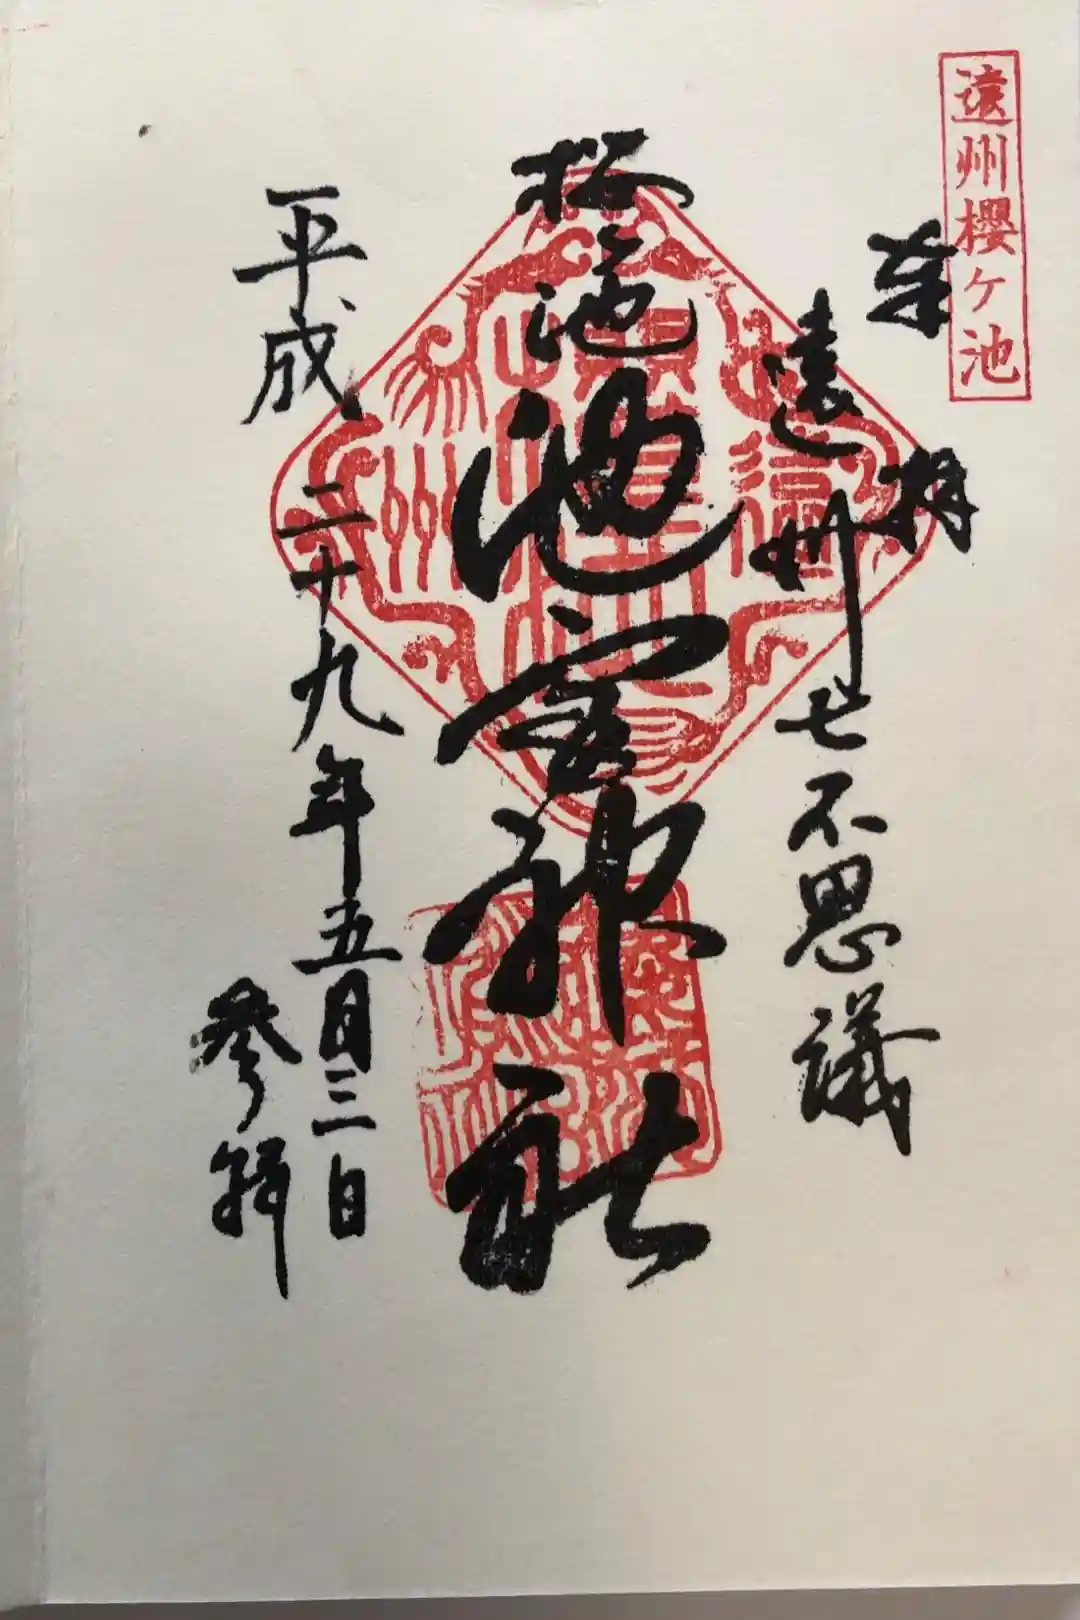 遠州櫻ヶ池
奉拝
遠州七不思議
桜ヶ池池宮神社
平成二十九年五月三日
参拝